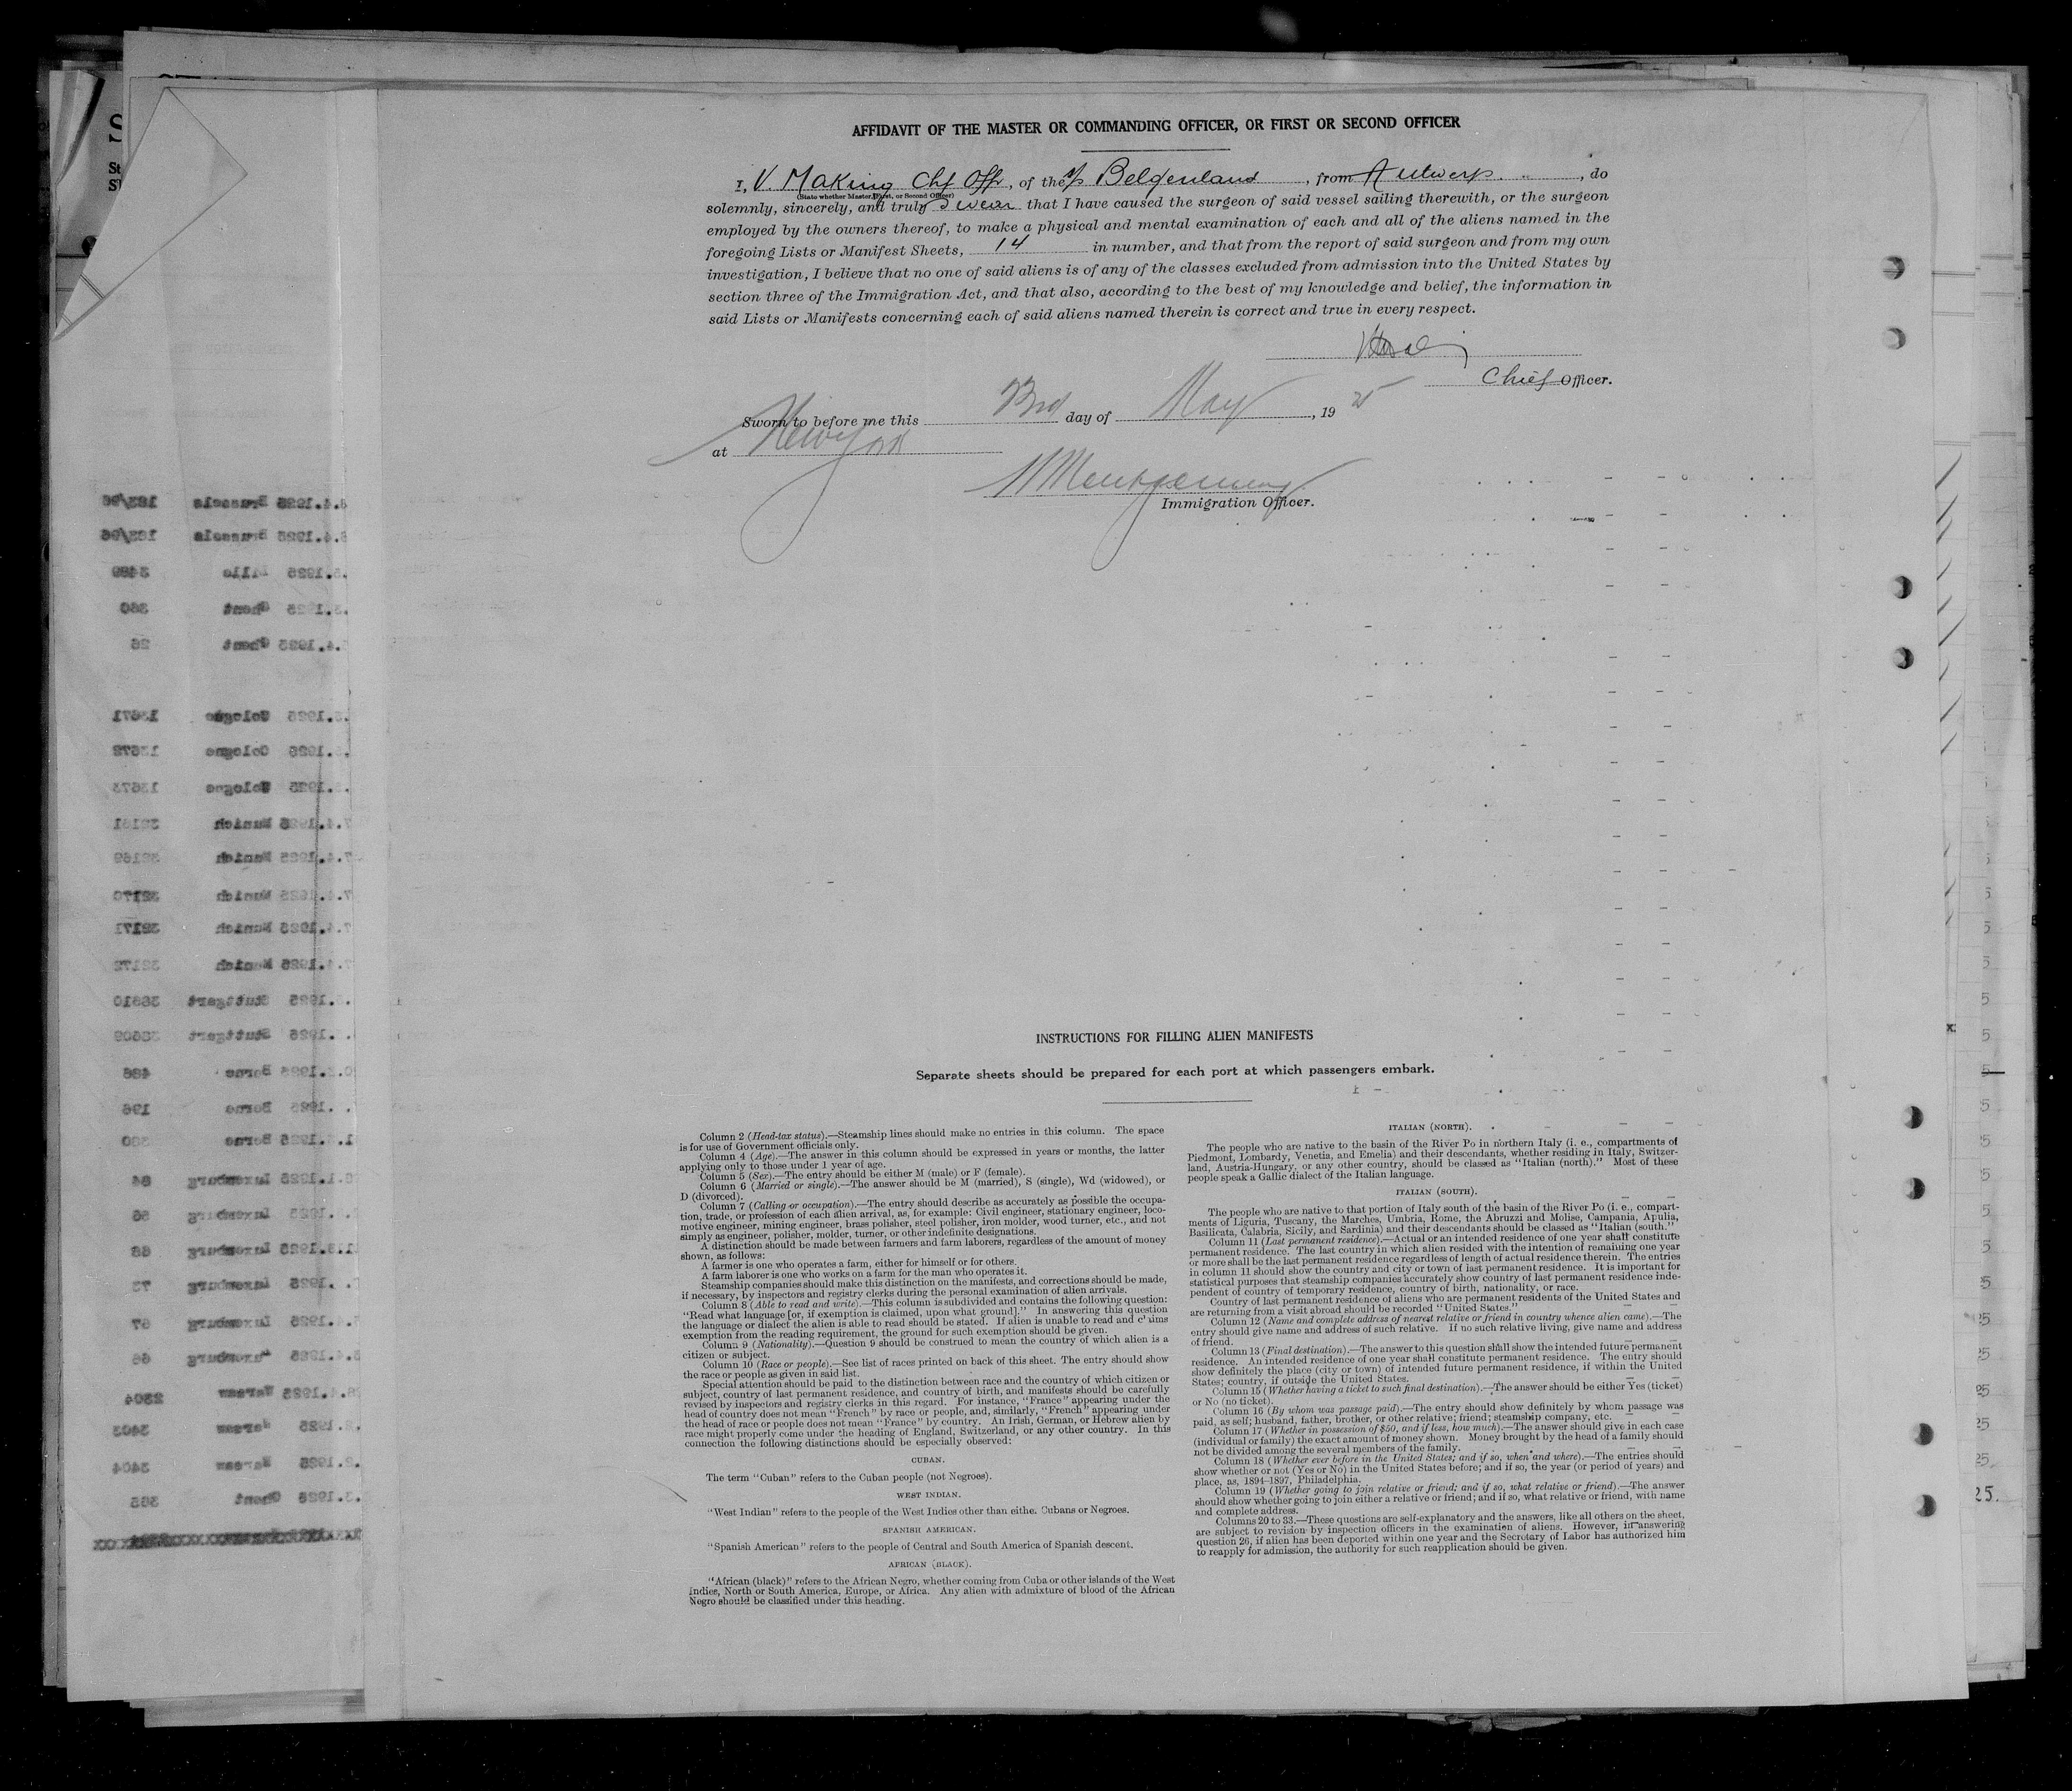 AFFIDAVIT OF THE MASTER OR COMMANDING OFFICER, OR FIRST OR SECOND OFFICER
I, V. Making Chf Offr, of the s/s Belgenland, from Antwerp, do
(State whether Master, First, or Second Officer)
solemnly, sincerely, and truly swear that I have caused the surgeon of said vessel sailing therewith, or the surgeon
employed by the owners thereof, to make a physical and mental examination of each and all of the aliens named in the
foregoing Lists or Manifest Sheets, 14 in number, and that from the report of said surgeon and from my own
investigation, I believe that no one of said aliens is of any of the classes excluded from admission into the United States by
section three of the Immigration Act, and that also, according to the best of my knowledge and belief, the information in
said Lists or Manifests concerning each of said aliens named therein is correct and true in every respect.
Chief Officer.
Sworn to before me this day of May, 19 25
at New York
Montgomery
Immigration Officer.
INSTRUCTIONS FOR FILLING ALIEN MANIFESTS
Separate sheets should be prepared for each port at which passengers embark.
Column 2 (Head-tax status).—Steamship lines should make no entries in this column. The space
is for use of Government officials only.
Column 4 (Age).—The answer in this column should be expressed in years or months, the latter
applying only to those under 1 year of age.
Column 5 (Sex).—The entry should be either M (male) or F (female).
Column 6 (Married or single).—The answer should be M (married), S (single), Wd (widowed), or
D (divorced).
Column 7 (Calling or occupation).—The entry should describe as accurately as possible the occupa-
tion, trade, or profession of each alien arrival, as, for example: Civil engineer, stationary engineer, loco-
motive engineer, mining engineer, brass polisher, steel polisher, iron molder, wood turner, etc., and not
simply as engineer, polisher, molder, turner, or other indefinite designations.
A distinction should be made between farmers and farm laborers, regardless of the amount of money
shown, as follows:
A farmer is one who operates a farm, either for himself or for others.
A farm laborer is one who works on a farm for the man who operates it.
Steamship companies should make this distinction on the manifests, and corrections should be made,
if necessary, by inspectors and registry clerks during the personal examination of alien arrivals.
Column 8 (Able to read and write).—This column is subdivided and contains the following question:
"Read what language [or, if exemption is claimed, upon what ground]." In answering this question
the language or dialect the alien is able to read should be stated. If alien is unable to read and claims
exemption from the reading requirement, the ground for such exemption should be given.
Column 9 (Nationality).—Question 9 should be construed to mean the country of which alien is a
citizen or subject.
Column 10 (Race or people).—See list of races printed on back of this sheet. The entry should show
the race or people as given in said list.
Special attention should be paid to the distinction between race and the country of which citizen or
subject, country of last permanent residence, and country of birth, and manifests should be carefully
revised by inspectors and registry clerks in this regard. For instance, "France" appearing under the
head of country does not mean "French" by race or people, and, similarly, "French" appearing under
the head of race or people does not mean "France" by country. An Irish, German, or Hebrew alien by
race might properly come under the heading of England, Switzerland, or any other country. In this
connection the following distinctions should be especially observed:
CUBAN.
The term "Cuban" refers to the Cuban people (not Negroes).
WEST INDIAN.
"West Indian" refers to the people of the West Indies other than either Cubans or Negroes.
SPANISH AMERICAN.
"Spanish American" refers to the people of Central and South America of Spanish descent.
AFRICAN (BLACK).
"African (black)" refers to the African Negro, whether coming from Cuba or other islands of the West
Indies, North or South America, Europe, or Africa. Any alien with admixture of blood of the African
Negro should be classified under this heading.
ITALIAN (NORTH).
The people who are native to the basin of the River Po in northern Italy (i. e., compartments of
Piedmont, Lombardy, Venetia, and Emelia) and their descendants, whether residing in Italy, Switzer-
land, Austria-Hungary, or any other country, should be classed as "Italian (north)." Most of these
people speak a Gallic dialect of the Italian language.
ITALIAN (SOUTH).
The people who are native to that portion of Italy south of the basin of the River Po (i. e., compart-
ments of Liguria, Tuscany, the Marches, Umbria, Rome, the Abruzzi and Molise, Campania, Apulia,
Basilicata, Calabria, Sicily, and Sardinia) and their descendants should be classed as "Italian (south."
Column 11 (Last permanent residence).—Actual or an intended residence of one year shall constitute
permanent residence. The last country in which alien resided with the intention of remaining one year
or more shall be the last permanent residence regardless of length of actual residence therein. The entries
in column 11 should show the country and city or town of last permanent residence. It is important for
statistical purposes that steamship companies accurately show country of last permanent residence inde-
pendent of country of temporary residence, country of birth, nationality, or race.
Country of last permanent residence of aliens who are permanent residents of the United States and
are returning from a visit abroad should be recorded "United States."
Column 12 (Name and complete address of nearest relative or friend in country whence alien came).—The
entry should give name and address of such relative. If no such relative living, give name and address
of friend.
Column 13 (Final destination).—The answer to this question shall show the intended future permanent
residence. An intended residence of one year shall constitute permanent residence. The entry should
show definitely the place (city or town) of intended future permanent residence, if within the United
States; country, if outside the United States.
Column 15 (Whether having a ticket to such final destination).—The answer should be either Yes (ticket)
or No (no ticket).
Column 16 (By whom was passage paid).—The entry should show definitely by whom passage was
paid, as self; husband, father, brother, or other relative; friend; steamship company, etc.
Column 17 (Whether in possession of $50, and if less, how much).—The answer should give in each case
(individual or family) the exact amount of money shown. Money brought by the head of a family should
not be divided among the several members of the family.
Column 18 (Whether ever before in the United States; and if so, when and where).—The entries should
show whether or not (Yes or No) in the United States before; and if so, the year (or period of years) and
place, as, 1894-1897, Philadelphia.
Column 19 (Whether going to join relative or friend; and if so, what relative or friend).—The answer
should show whether going to join either a relative or friend; and if so, what relative or friend, with name
and complete address.
Columns 20 to 33.—These questions are self-explanatory and the answers, like all others on the sheet,
are subject to revision by inspection officers in the examination of aliens. However, in answering
question 26, if alien has been deported within one year and the Secretary of Labor has authorized him
to reapply for admission, the authority for such reapplication should be given.